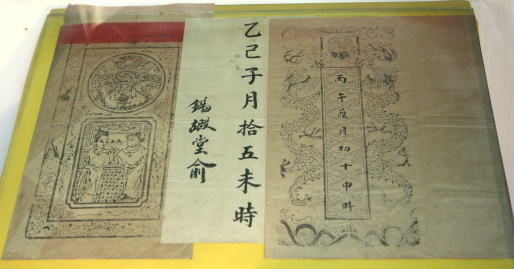 丙午月初十申時
乙己子月拾五未時
錫嘏堂俞